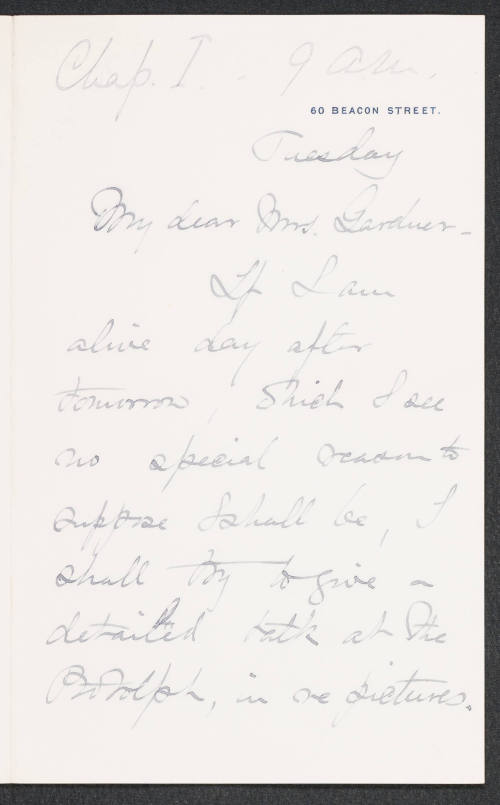 Chap. I. - 9 a.m.
60 BEACON STREET.
Tuesday
My dear Mrs. Gardner -
If I am
alive day after
tomorrow, which I see
no special reason to
suppose I shall be, I
shall try to give a
detailed talk at the
in re pictures.